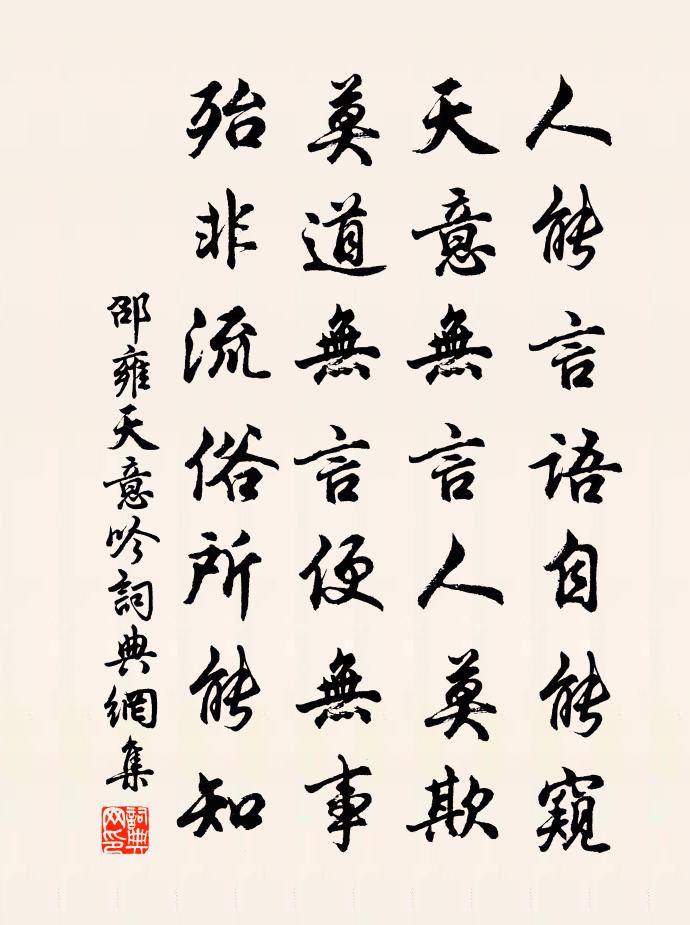 人能言語自能窺
天意無言人莫欺
莫道無言便無事
殆非流俗所能知
邵雍天意吟詞典網集
詞典網印